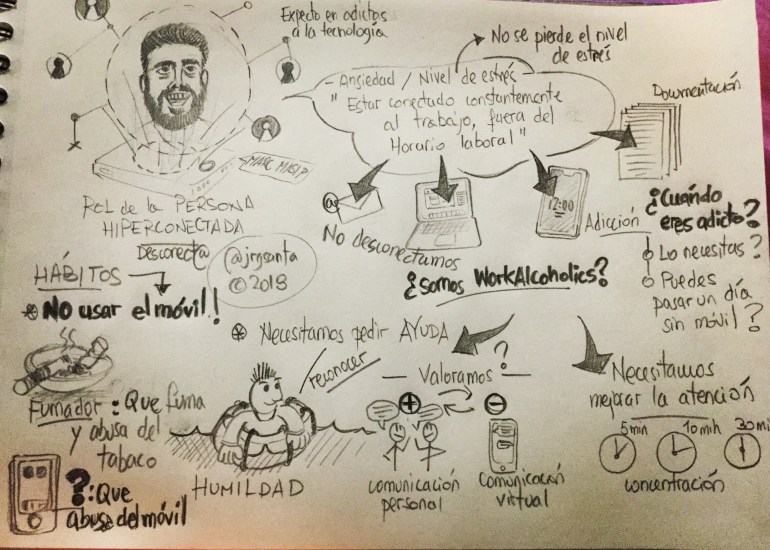 Experto en adictos
a la tecnología
MARC MASIP
ROL de la PERSONA
HIPERCONECTADA
Desconect@
@jrgsanta
© 2018
No se pierde el nivel
de estrés
Ansiedad / Nivel de estrés
"Estar conectado constantemente
al trabajo, fuera del
Horario laboral"
Documentación
@
No desconectamos
12:00
Adicción
¿Cuándo
eres adicto?
Lo necesitas?
Puedes
pasar un día
sin móvil?
¿Somos WorkAlcoholics?
HÁBITOS
No usar el móvil!
Necesitamos pedir AYUDA
reconocer
HUMILDAD
Fumador: Que fuma
y abusa del
tabaco
?: Que
abusa del móvil
Valoramos?
+
-
comunicación
personal
Comunicación
virtual
Necesitamos
mejorar la atención
5 min
10 min
30 mi
concentración